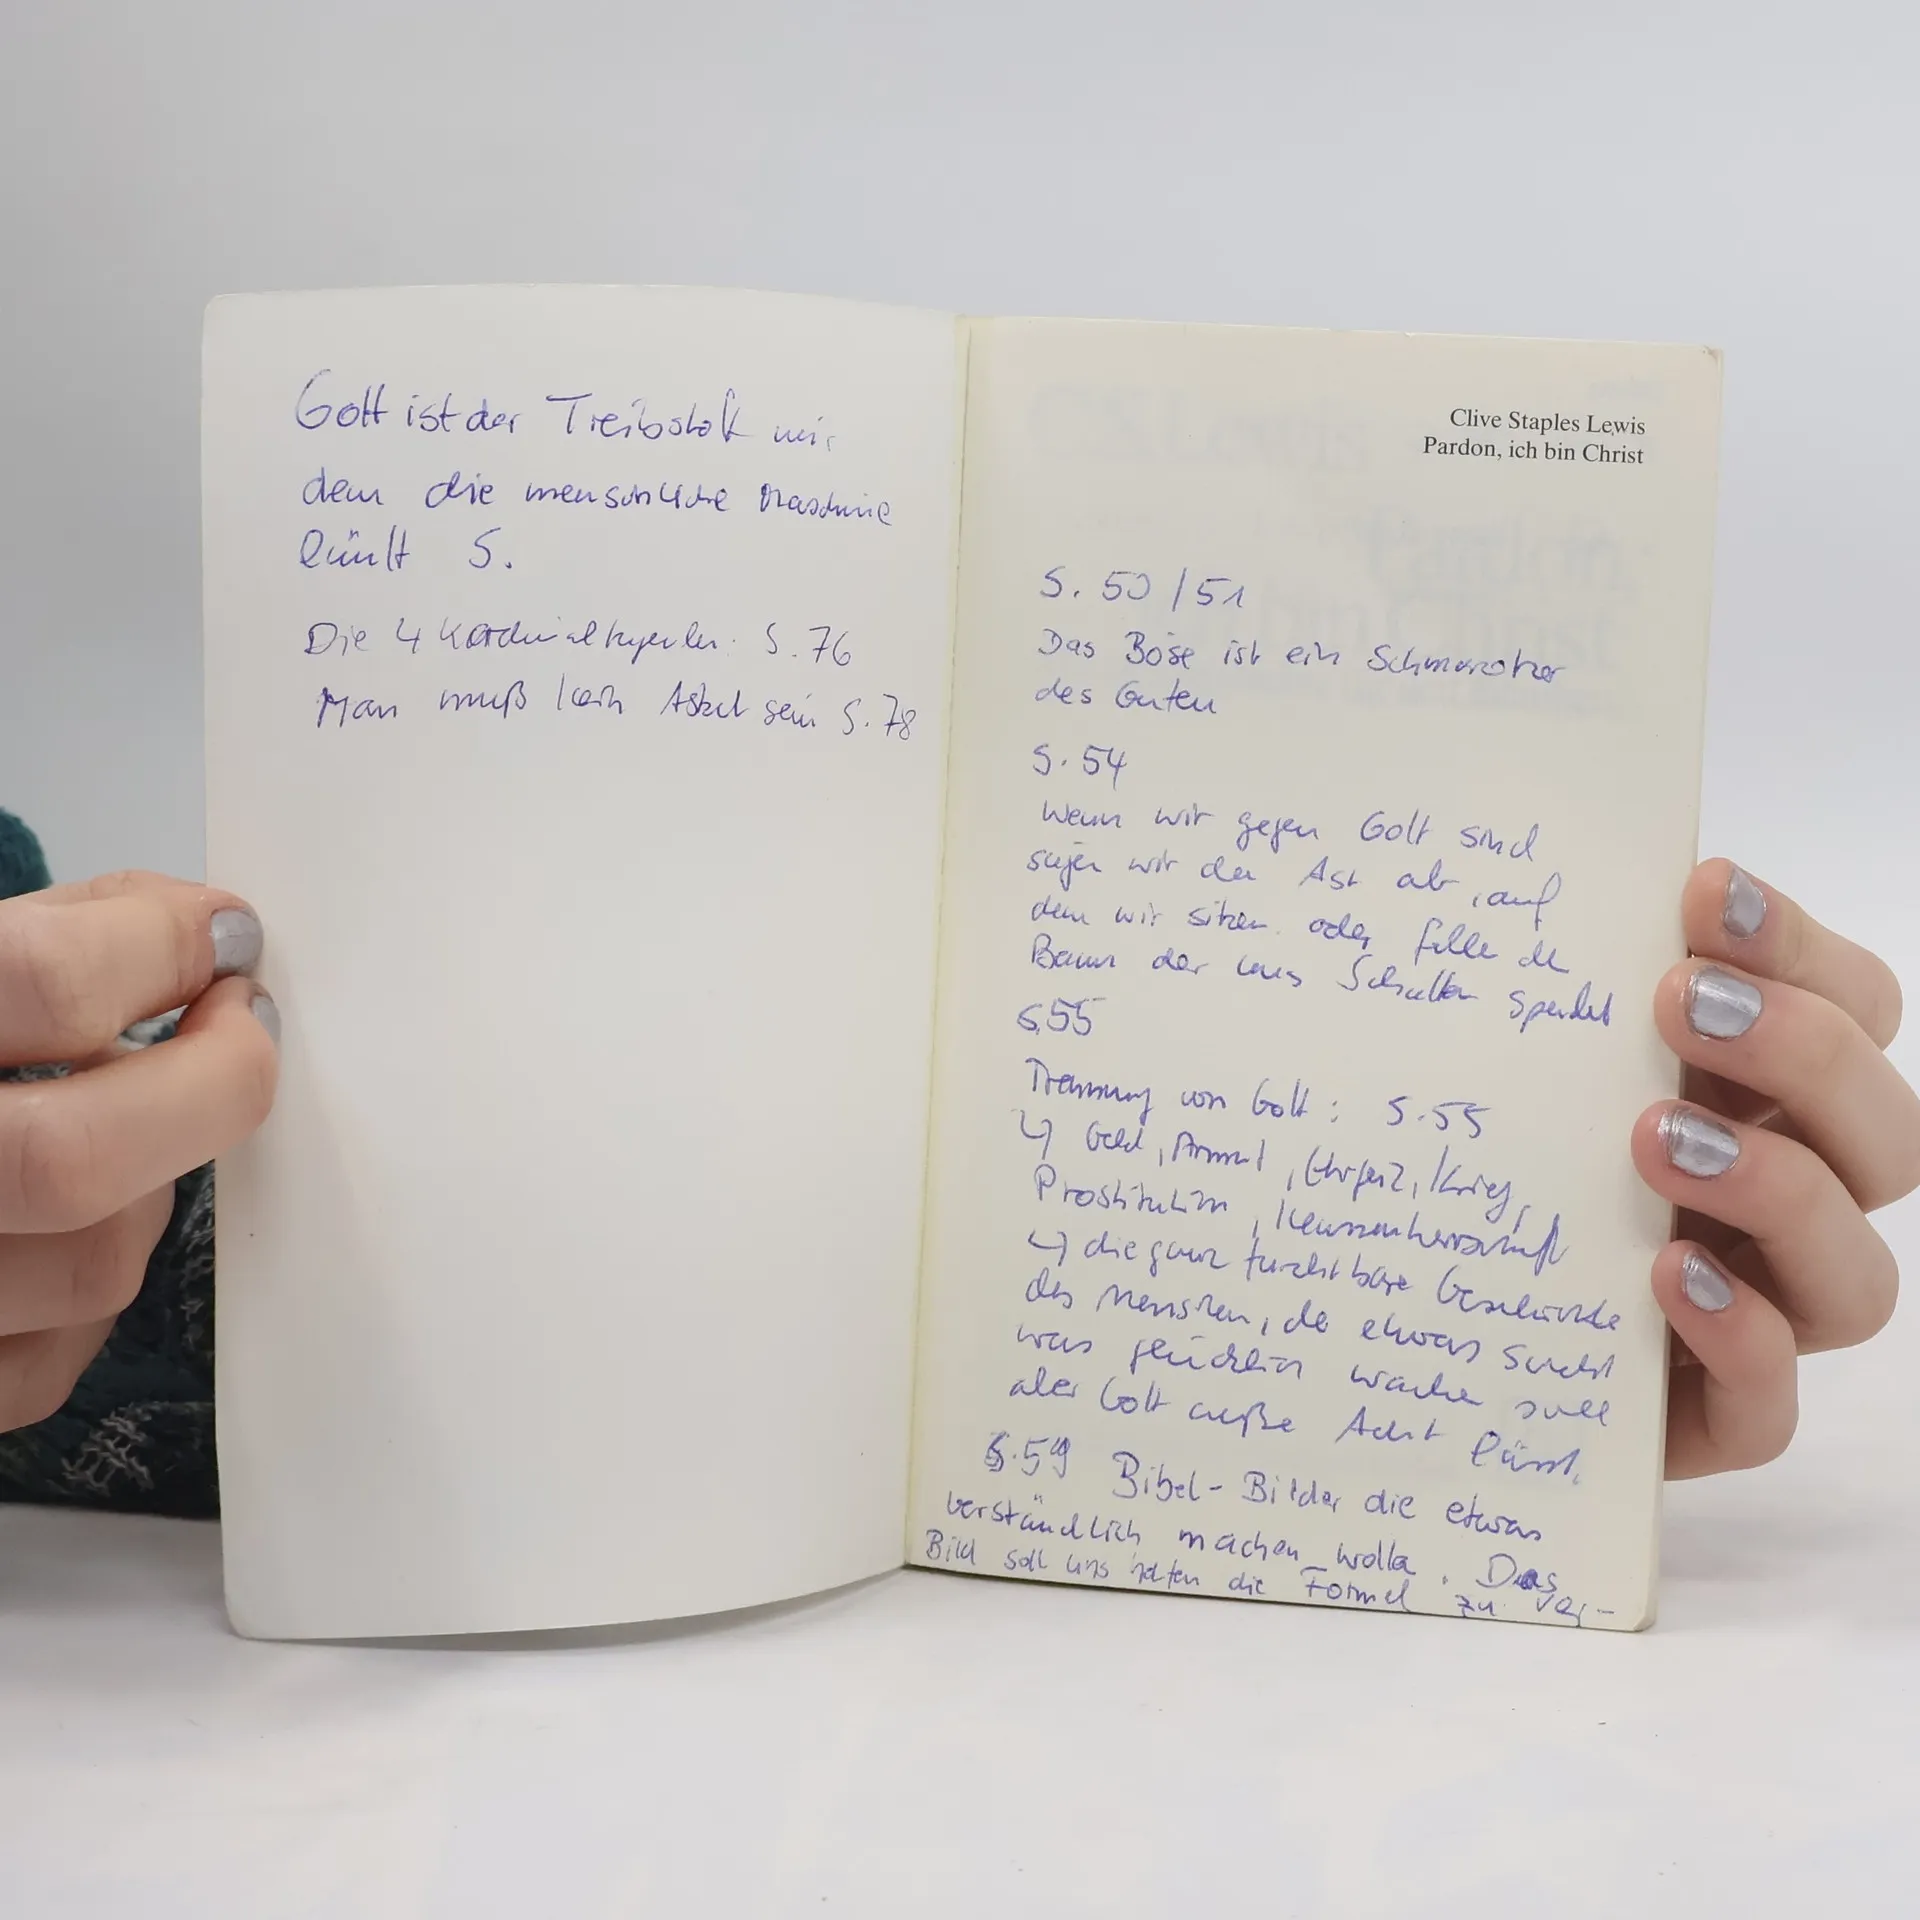 Gott ist der Treibstoff mit
dem die menschliche Maschine
läuft S.
Die 4 Kardinaltugenden: S. 76
Man muß kein Asket sein S. 78
Clive Staples Lewis
Pardon, ich bin Christ
S. 50/51
Das Böse ist ein Schmarotzer
des Guten
S. 54
Wenn wir gegen Gott sind
sägen wir den Ast ab, auf
dem wir sitzen oder fälle den
Baum der uns Schatten spendet
S. 55
Trennung von Gott: S. 55
↳ Geld, Armut, Ehrgeiz, Krieg,
Prostitution, Klassenherrschaft
↳ die ganz furchtbare Geschichte
des Menschen, der etwas sucht
was glücklich machen soll
aber Gott außer Acht lässt.
S. 59 Bibel-Bilder die etwas
verständlich machen wollen. Das
Bild soll uns helfen die Formel zu ver-